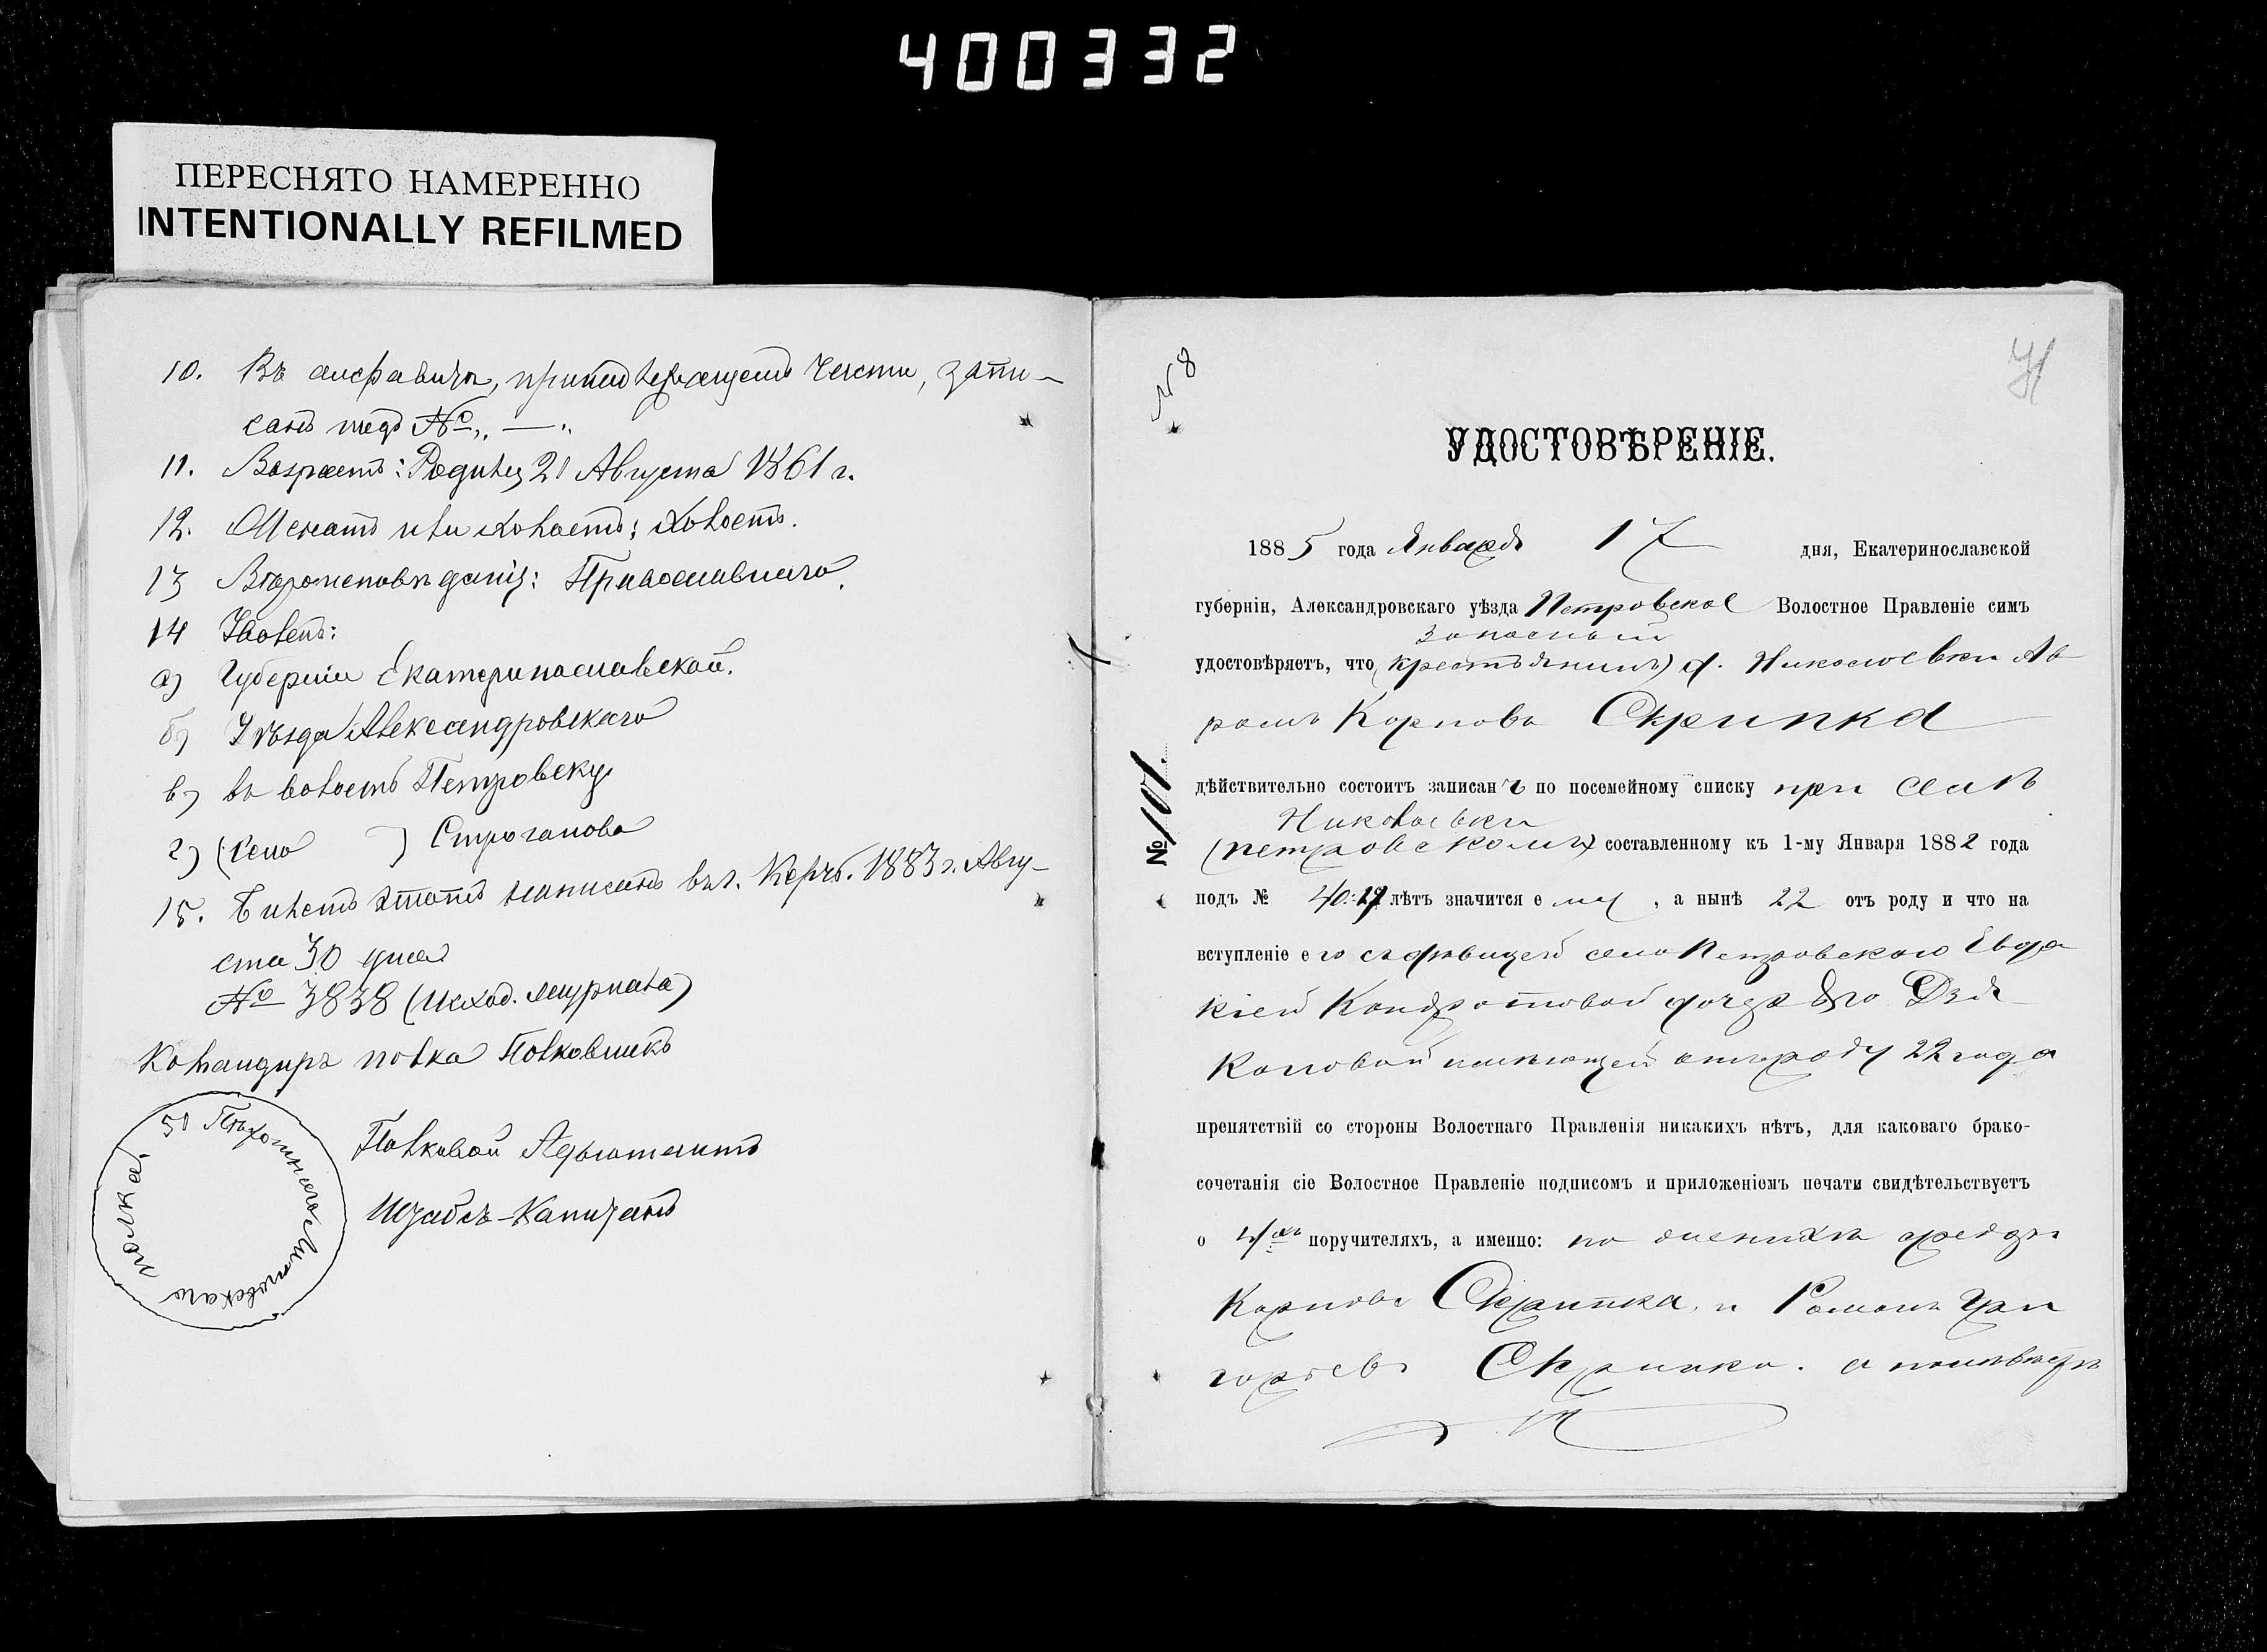 400332
ПЕРЕСНЯТО НАМЕРЕННО
INTENTIONALLY REFILMED
10. Въ алфавитѣ, принадлежащемъ части, запи-
санъ подъ №„ — „
11. Возрастъ: Родился 21 Августа 1861 г.
12. Женатъ или холостъ: Холостъ.
13 Вѣроисповѣданія: Православнаго.
14 Уволенъ:
а) Губерніи Екатеринославской.
б) Уѣзда Александровскаго
в) въ волость Петровскую
г) (село ) Строганова
15. Билетъ этотъ написанъ въ г. Керчь. 1883 г. Авгу-
ста 30 дня
№ 3838 (исход. журнала)
Командиръ полка Полковникъ
Полковой Адъютантъ
Штабсъ-Капитанъ
51 Пѣхотнаго Литовскаго полка
№ 8
71
УДОСТОВѢРЕНІЕ.
1885 года Января 17 дня, Екатеринославской
губерніи, Александровскаго уѣзда Петровское Волостное Правленіе симъ
запасный
удостовѣряетъ, что (крестьянинъ) д. Николаевки Ав
рамъ Карповъ Скрипка
дѣйствительно состоитъ записанъ по посемейному списку при селѣ
Николаевки
(петровскомъ) составленному къ 1-му Января 1882 года
подъ № 40. 19 лѣтъ значится ему, а нынѣ 22 отъ роду и что на
вступленіе его съ дѣвицей села Петровскаго Евдо
кіей Кондратовой дочерью Дзя
коловой имѣющей отъ роду 22 года
препятствій со стороны Волостнаго Правленія никакихъ нѣтъ, для каковаго брако-
сочетанія сіе Волостное Правленіе подписомъ и приложеніемъ печати свидѣтельствуетъ
о 4хъ поручителяхъ, а именно: по женихѣ
Карповъ Скрипка, и Романъ Гри
горьевъ Скрипка. а по невѣстѣ
№ 101.